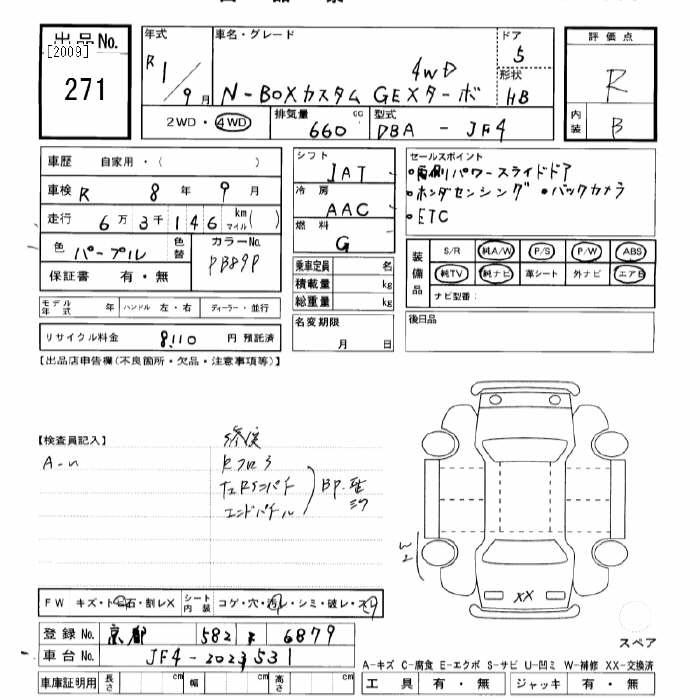 出品No.
[2009]
271
年式
R1/9月
車名・グレード
4WD
N-BOXカスタム GEXターボ
ドア
5
形状
HB
評価点
R
内装
B
2WD・4WD
排気量
660 cc
型式
DBA - JF4
車歴 自家用・( )
車検 R 8年 9月
走行 6万3千146 km マイル( )
色 パープル 色替 カラーNo. PB89P
保証書 有・無
シフト
IAT
冷房
AAC
燃料
G
乗車定員 名
積載量 kg
総重量 kg
名変期限
月 日
セールスポイント
・両側パワースライドドア
・ホンダセンシング ・バックカメラ
・ETC
装備品
S/R 純A/W P/S P/W ABS
純TV 純ナビ 革シート 外ナビ エアB
ナビ型番:
後日品
モデル年式 年 ハンドル 左・右 ディーラー・並行
リサイクル料金 8,110 円 預託済
【出品店申告欄(不良箇所・欠品・注意事項等)】
【検査員記入】
A-n
修復
Rフロア
エンドパネル
BP.歪
W2
XX
FW キズ・トビ石・割レX シート内装 コゲ・穴・汚レ・シミ・破レ・スリ
登録No. 京都 582 6879
車台No. JF4-2023531
車庫証明用 長さ cm 幅 cm 高さ cm
スペア
A-キズ C-腐食 E-エクボ S-サビ U-凹ミ W-補修 XX-交換済
工具 有・無 ジャッキ 有・無